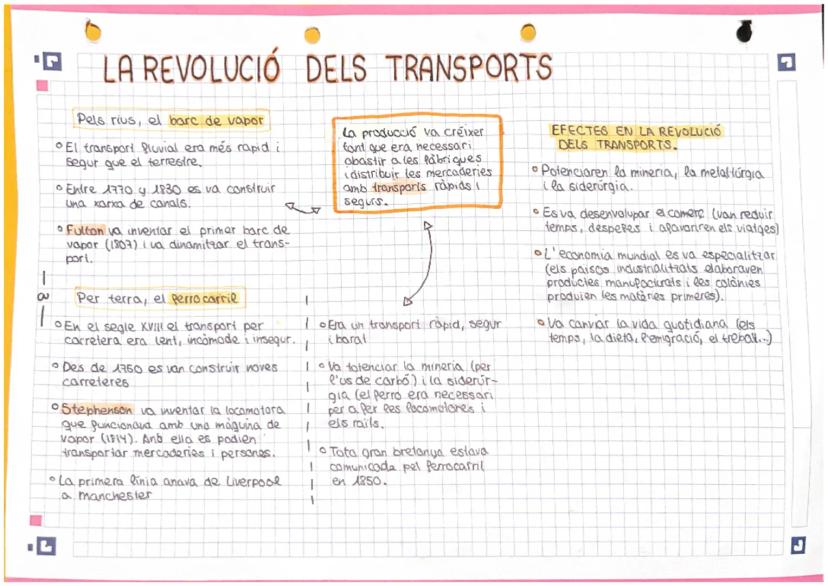 LA REVOLUCIÓ DELS TRANSPORTS
Pels rius, el barc de vapor
El transport fluvial era més rapid i
segur que el terrestre.
Entre 1770 y 1830 es va construir
una xarxa de canals.
Fulton va inventar el primer barc de
vapor (1807) i va dinamitzar el trans-
port.
La producció va créixer
tant que era necessari
abastir a les fàbriques
i distribuir les mercaderies
amb transports ràpids i
segurs.
Per terra, el ferrocarril
En el segle XVIII el transport per
carretera era lent, incòmode i insegur.
Des de 1750 es van construir noves
carreteres
Stephenson va inventar la locomotora
que funcionava amb una màquina de
vapor (1814). Anb ella es podien
transportar mercaderies i persones.
La primera línia anava de Liverpool
a manchester
Era un transport ràpid, segur
i barat
Va totenciar la mineria (per
l'us de carbó) i la siderúr-
gia (el ferro era necessari
per a fer les locomotores i
els rails.
Tota gran bretanya estava
comunicada pel ferrocarril
en 1850.
EFECTES EN LA REVOLUCIÓ
DELS TRANSPORTS.
Potenciaren la mineria, la metal·lúrgia
i la siderúrgia.
Es va desenvolupar el comerç (van reduir
temps, despeses i afavoriren els viatges)
L'economia mundial es va especialitzar
(els països industrialitzats elaboraven
productes manufacturats i les colònies
produïen les matèries primeres).
Va canviar la vida quotidiana (els
temps, la dieta, l'emigració, el treball...)